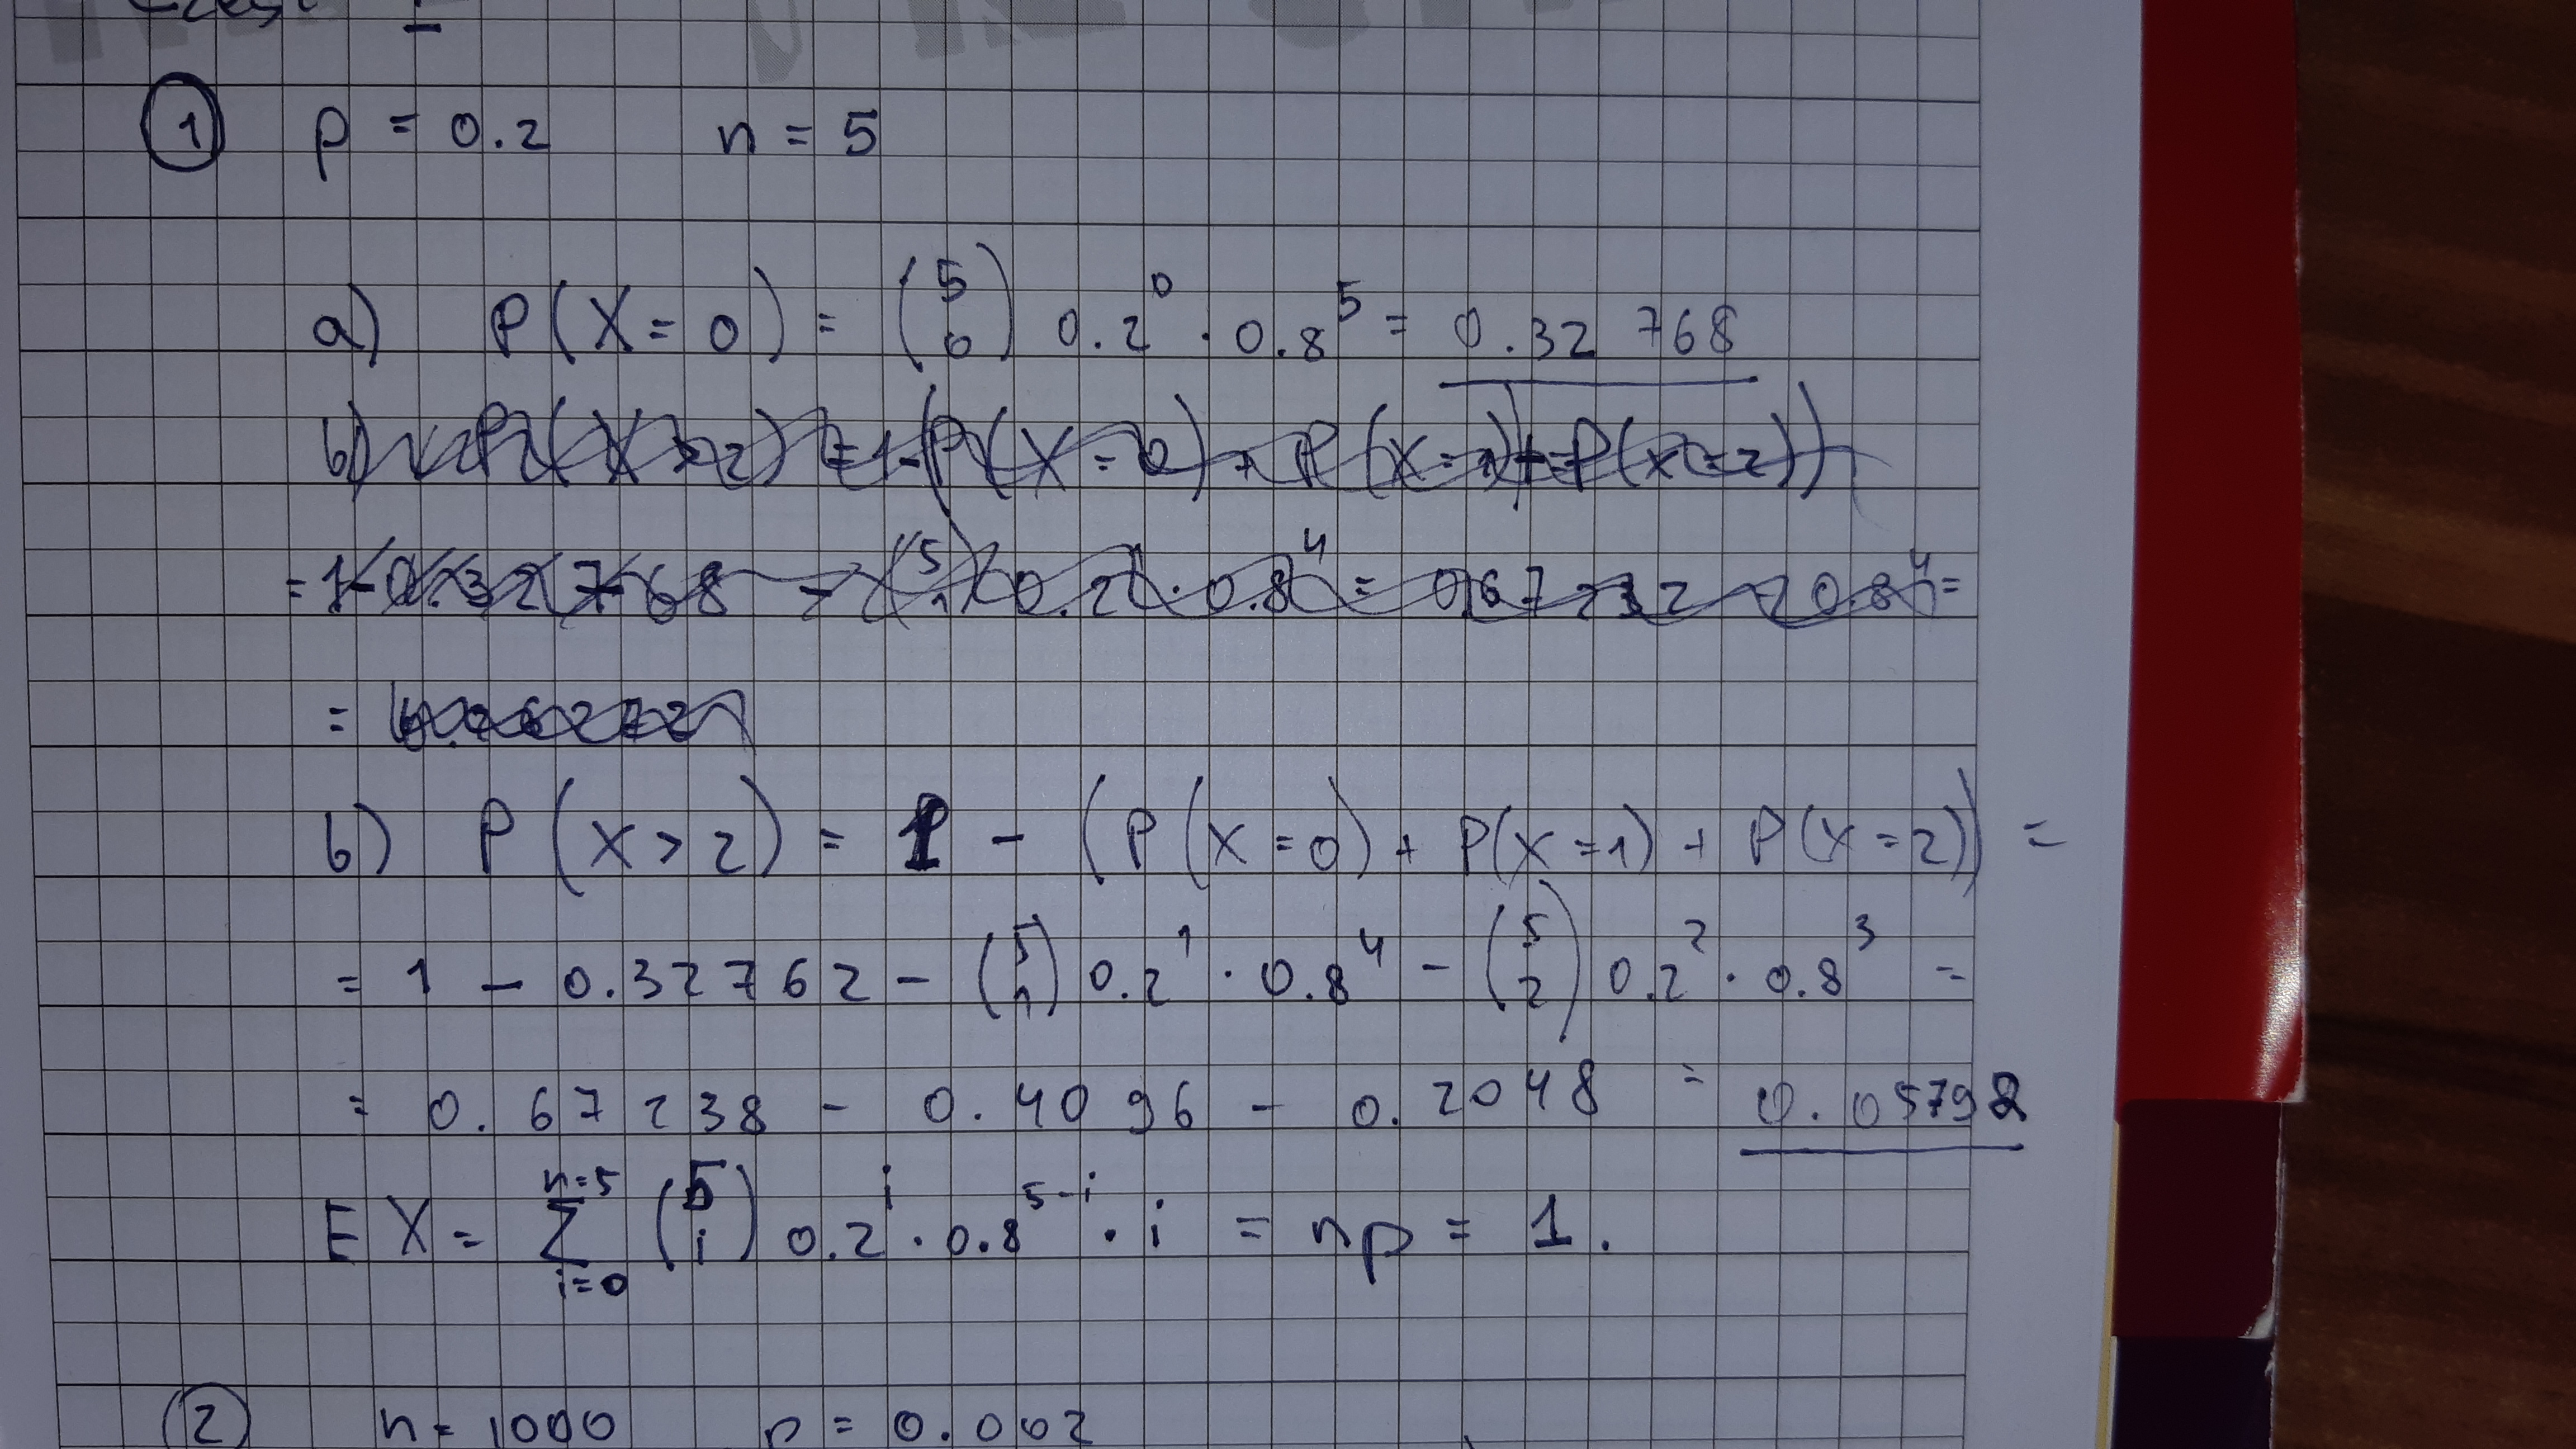 ① p = 0.2 n = 5
a) P(X = 0) = (5 0) 0.2⁰ · 0.8⁵ = 0.32 768
b) P(X > 2) = 1 - (P(X = 0) + P(X = 1) + P(X = 2))
= 1 - 0.32768 - (5 1) 0.2¹ · 0.8⁴ = 0.67232 - 0.8⁴ =
=
b) P(X > 2) = 1 - (P(X = 0) + P(X = 1) + P(X = 2)) =
= 1 - 0.32762 - (5 1) 0.2¹ · 0.8⁴ - (5 2) 0.2² · 0.8³ =
= 0.67238 - 0.4096 - 0.2048 = 0.05792
EX = Σ_{i=0}^{n=5} (5 i) 0.2ⁱ · 0.8⁵⁻ⁱ · i = np = 1.
② n = 1000 p = 0.002